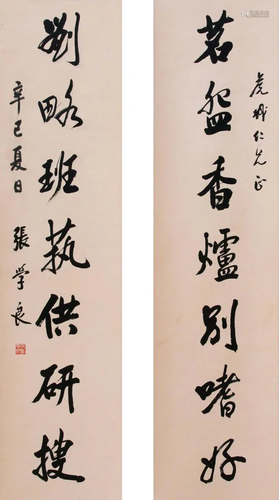 虎城仁兄正
茗盌香爐別嗜好
劉略班埶供研搜
辛巳夏日 張学良